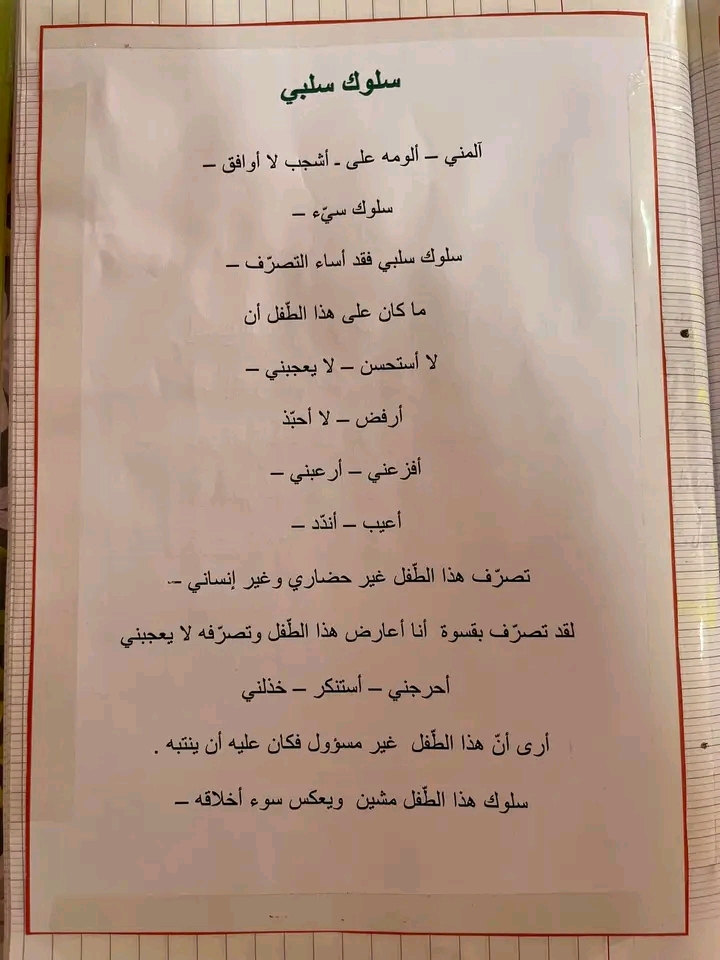 سلوك سلبي
آلمني – ألومه على - أشجب لا أوافق –
سلوك سيّء –
سلوك سلبي فقد أساء التصرّف –
ما كان على هذا الطّفل أن
لا أستحسن – لا يعجبني –
أرفض – لا أحبّذ
أفزعني – أرعبني –
أعيب – أندّد –
تصرّف هذا الطّفل غير حضاري وغير إنساني –
لقد تصرّف بقسوة أنا أعارض هذا الطّفل وتصرّفه لا يعجبني
أحرجني – أستنكر – خذلني
أرى أنّ هذا الطّفل غير مسؤول فكان عليه أن ينتبه .
سلوك هذا الطّفل مشين ويعكس سوء أخلاقه –